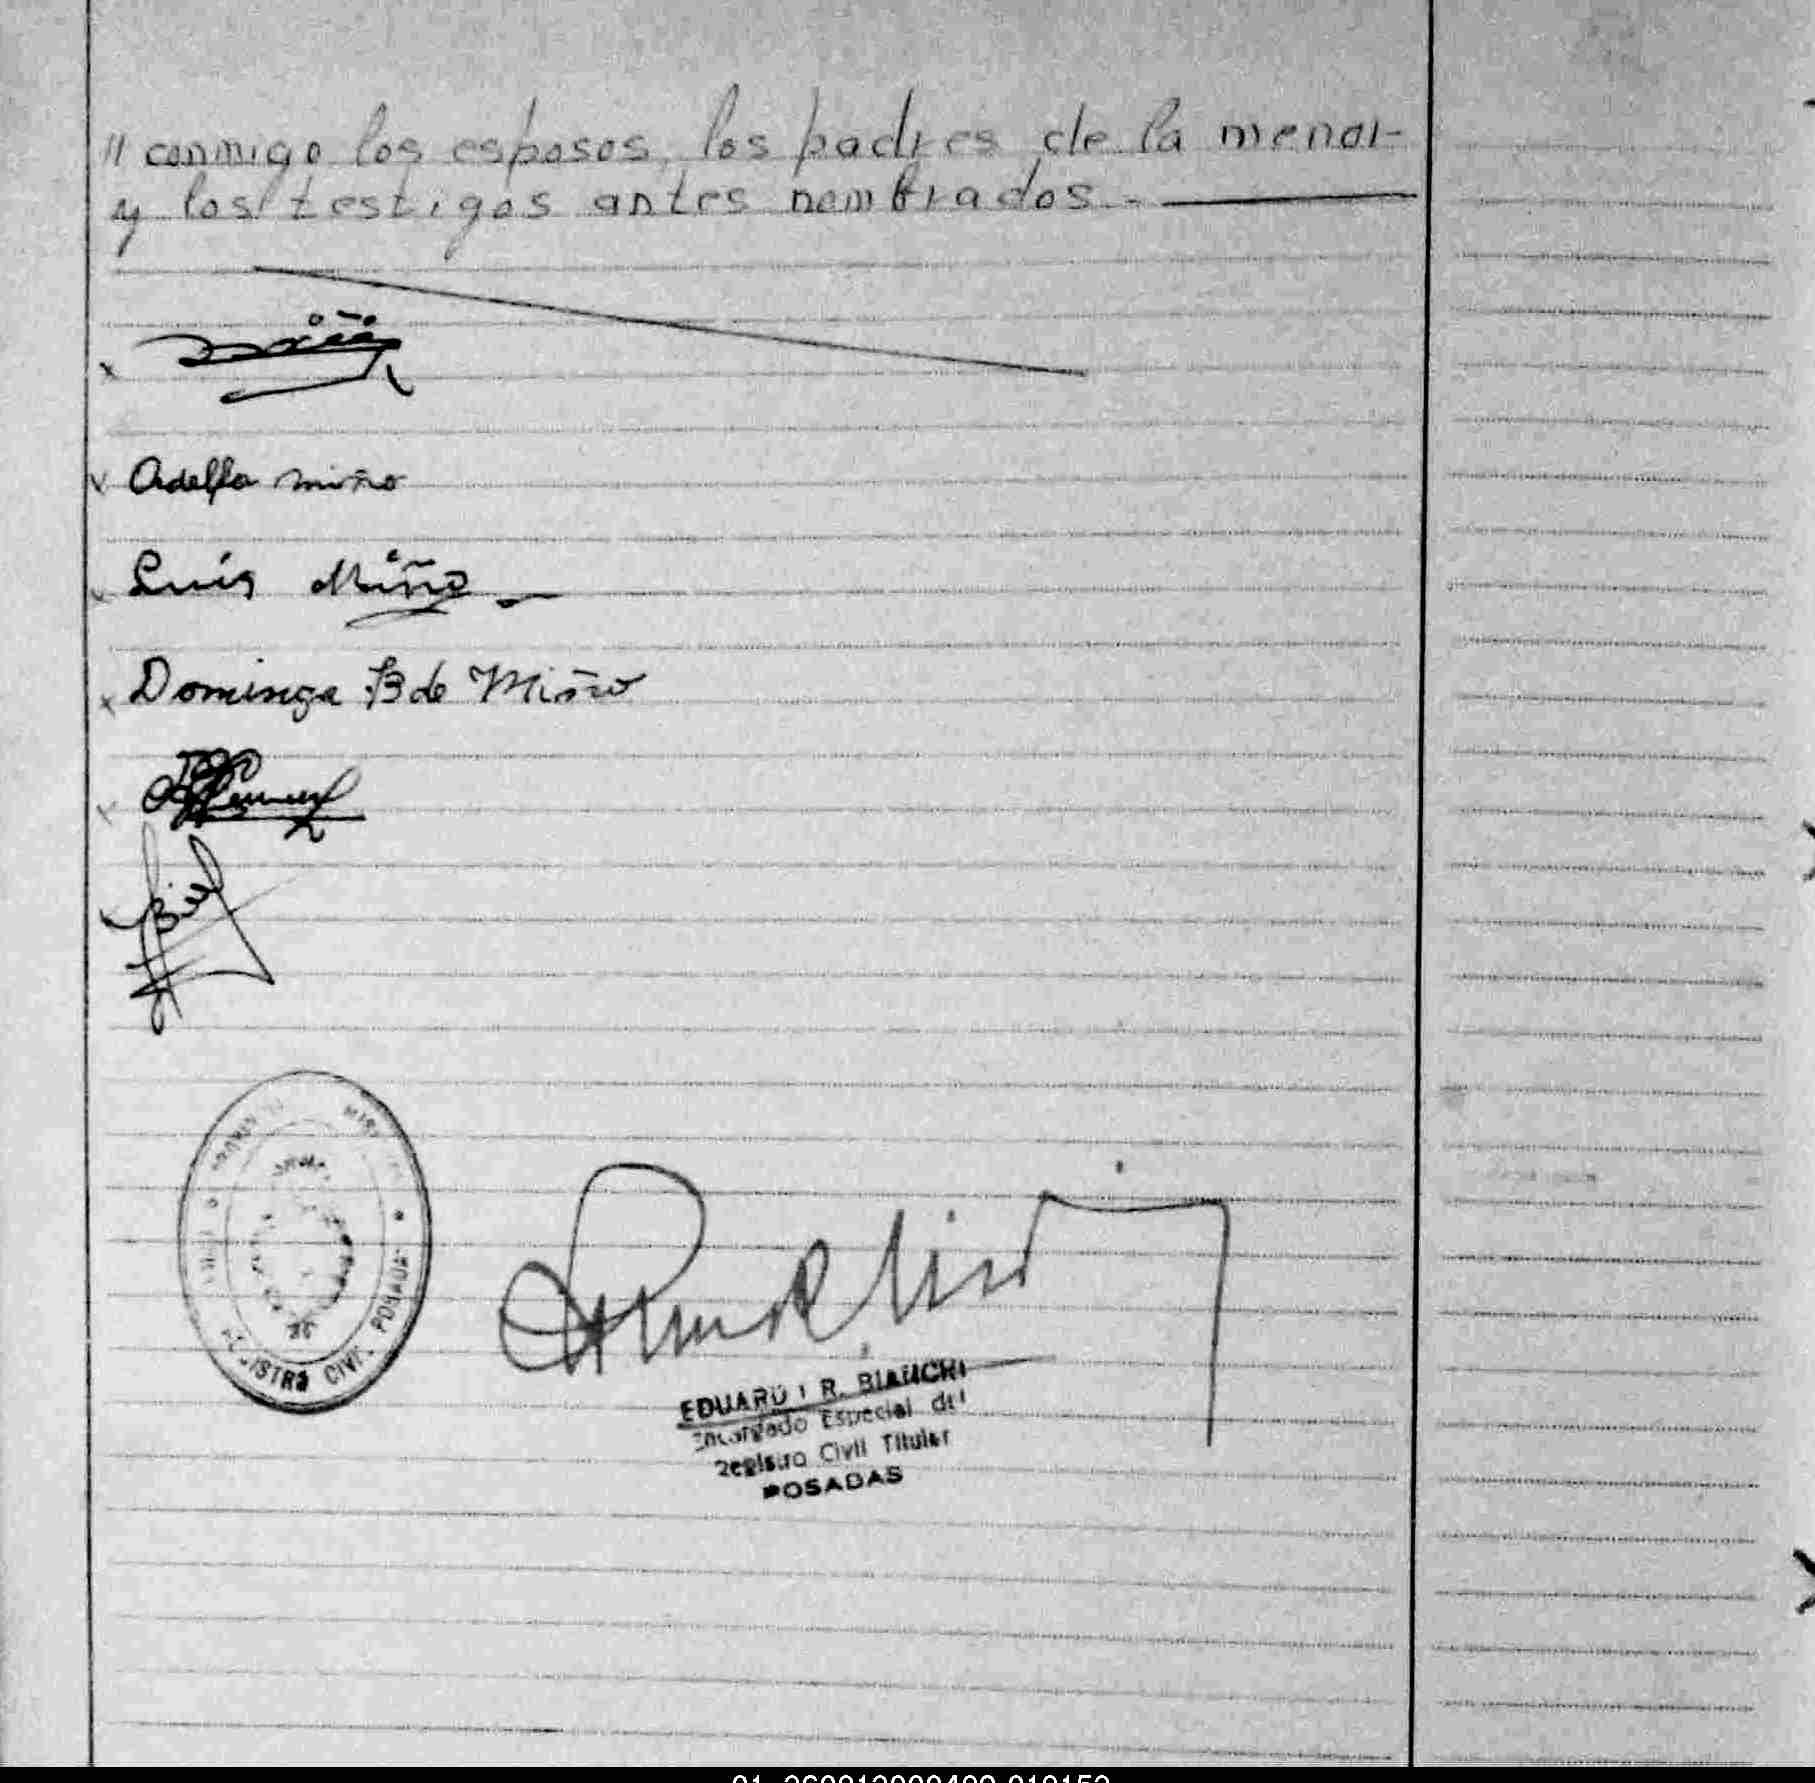 // conmigo los esposos, los padres de la menor-
y los testigos antes nombrados.-
Adelfa miño
Luis Miño
Dominga B de Miño
REGISTRO CIVIL POSADAS
EDUARDO R. BIANCHI
Encargado Especial del
Registro Civil Titular
POSADAS